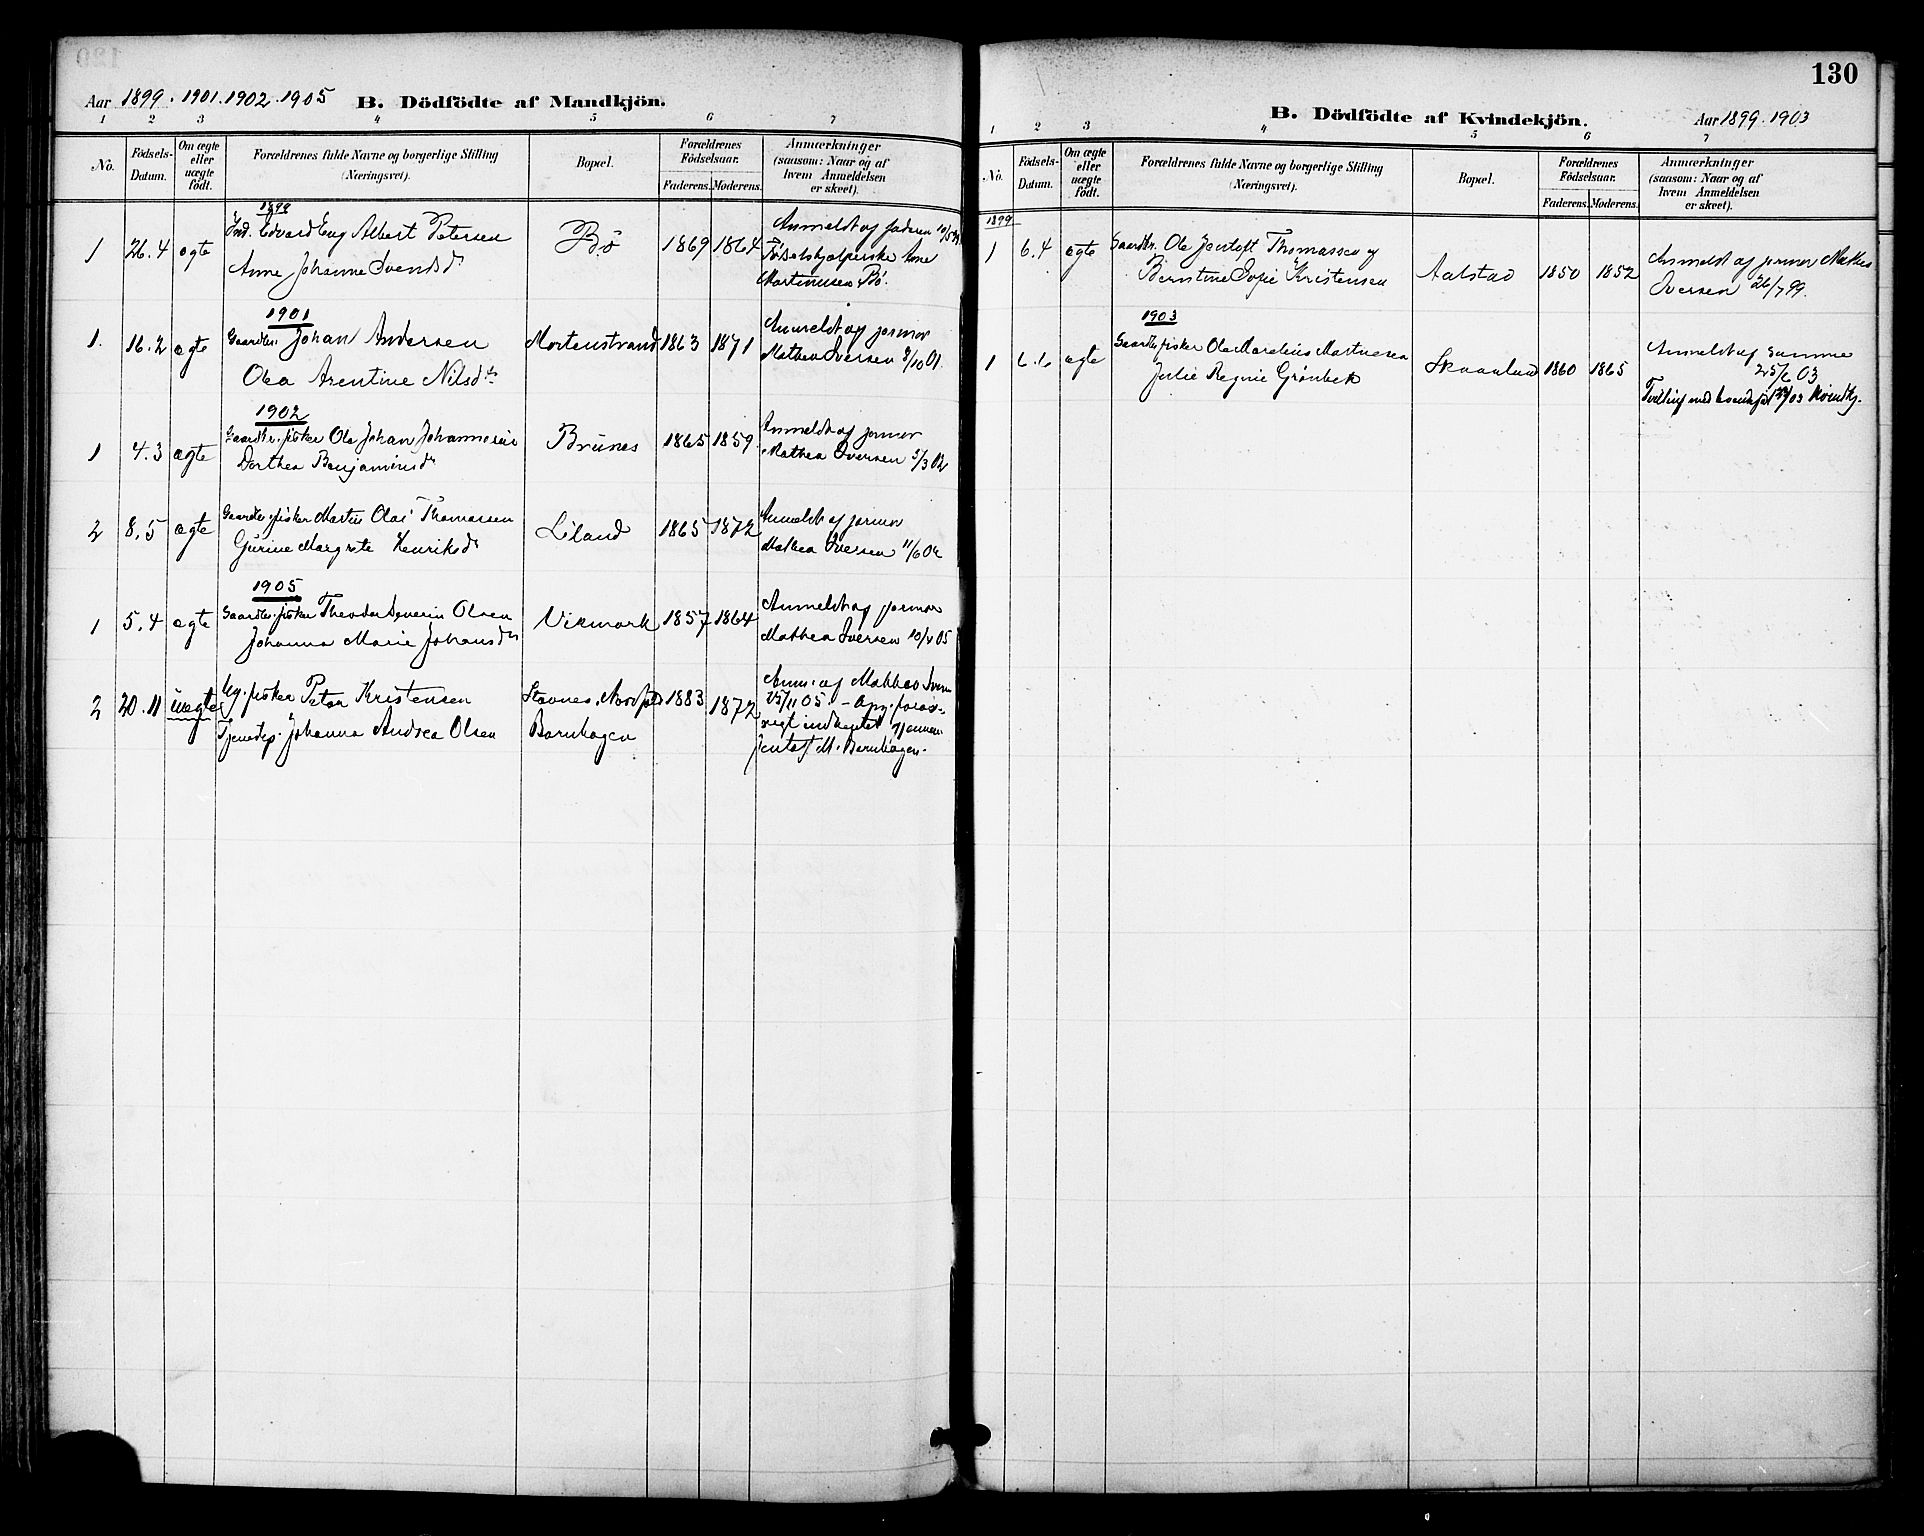 Aar 1899. 1901. 1902. 1905 B. Dödfödte af Mandkjön.
1 2 3 4 5 6 7
No. Födsels-Datum. Om ægte eller uægte födt. Forældrenes fulde Navne og borgerlige Stilling (Næringsvei). Bopæl. Forældrenes Födselsaar. Faderens. Moderens. Anmærkninger (saasom: Naar og af hvem Anmeldelsen er skeet).
1899
1 26.4 ægte Ind. Edvard Eug Albert Petersen Bö 1869 1864 Anmeldt af faderen
Anne Johanne Svendsd Födselshjælperske Ane
Martinusen Bö.
1901
1. 16.2 ægte Gaardbr. Johan Andersen Mortenstrand 1863 1871 Anmeldt af jormor
Olea Arentine Nilsdtr Mathea Iversen 8/10 01.
1902
1 4.3 ægte Gaardbr. fisker Ole Johan Johannesen Brunes 1865 1859. Anmeldt af jormor
Dorthea Benjaminsdr Mathea Iversen 5/3 02
2 8.5 ægte Gaardbr. fisker Martin Olai Thomassen Liland 1865 1872 Anmeldt af jormor
Gurine Margrete Henriksdr Mathea Iversen 11/6 02
1905
1 5.4 ægte Gaardbr. fisker Theodor Severin Olsen Vikmark 1857 1864 Anmeldt af jormor
Johanna Marie Johansdr Mathea Iversen 10/4 05
2 20.11 uægte Ug. fisker Peter Kristensen Stavnes, 1883 1872 Anm. af Mathea Iversen
Tjenestep. Johanna Andrea Olsen Barnhagen 25/11 05. – Opg.
indhentet gjennem
Jentoft M. Barnhagen.
130
B. Dödfödte af Kvindekjön. Aar 1899. 1903
1 2 3 4 5 6 7
No. Födsels-Datum. Om ægte eller uægte födt. Forældrenes fulde Navne og borgerlige Stilling (Næringsvei). Bopæl. Forældrenes Födselsaar. Faderens. Moderens. Anmærkninger (saasom: Naar og af hvem Anmeldelsen er skeet).
1899
1 6.4 ægte Gaardbr. Ole Jentoft Thomassen og Aalstad 1850 1852 Anmeldt af jormor Mathea
Berntine Sofie Kristensen Iversen 26/7 99.
1903
1 6.6 ægte Gaardbr. fisker Ole Marelius Martinesen Skaanland 1860 1865 Anmeldt af samme
Julie Regine Grønbek 25/6 03
Tvilling med